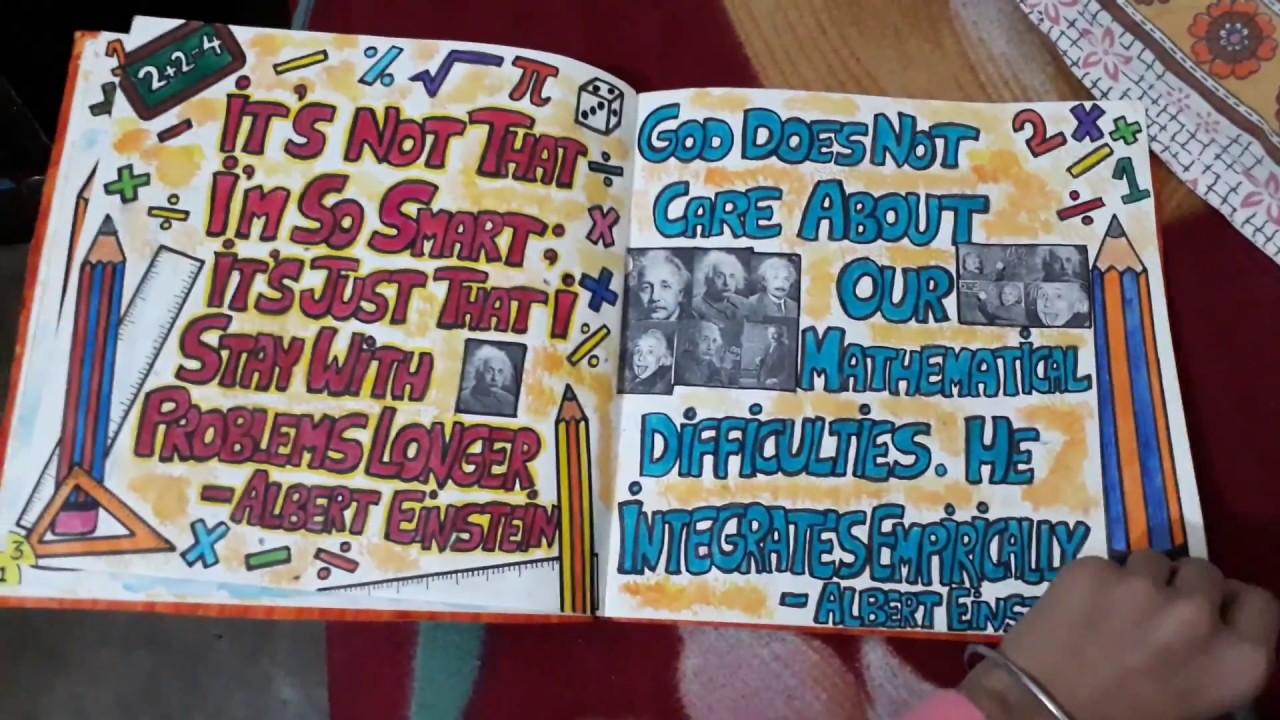 2+2=4
% √ π
IT'S NOT THAT
I'M SO SMART;
IT'S JUST THAT I
STAY WITH
PROBLEMS LONGER
-ALBERT EINSTEIN
3
1
GOD DOES NOT
CARE ABOUT
OUR
MATHEMATICAL
DIFFICULTIES. HE
INTEGRATES EMPIRICALLY
- ALBERT EINS
2 × +
1